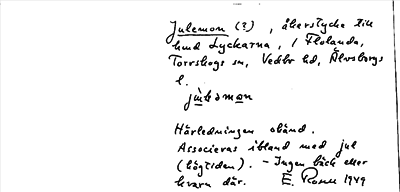 Julemon (?), åkerstycke till
hmd Lyckorna, i Flolanda,
Torrskogs sn, Vedbo hd, Älvsborgs
l.
Härledningen okänd.
Associeras ibland med jul
(högtiden). – Ingen bäck eller
kvarn där. E. Ronn 1949